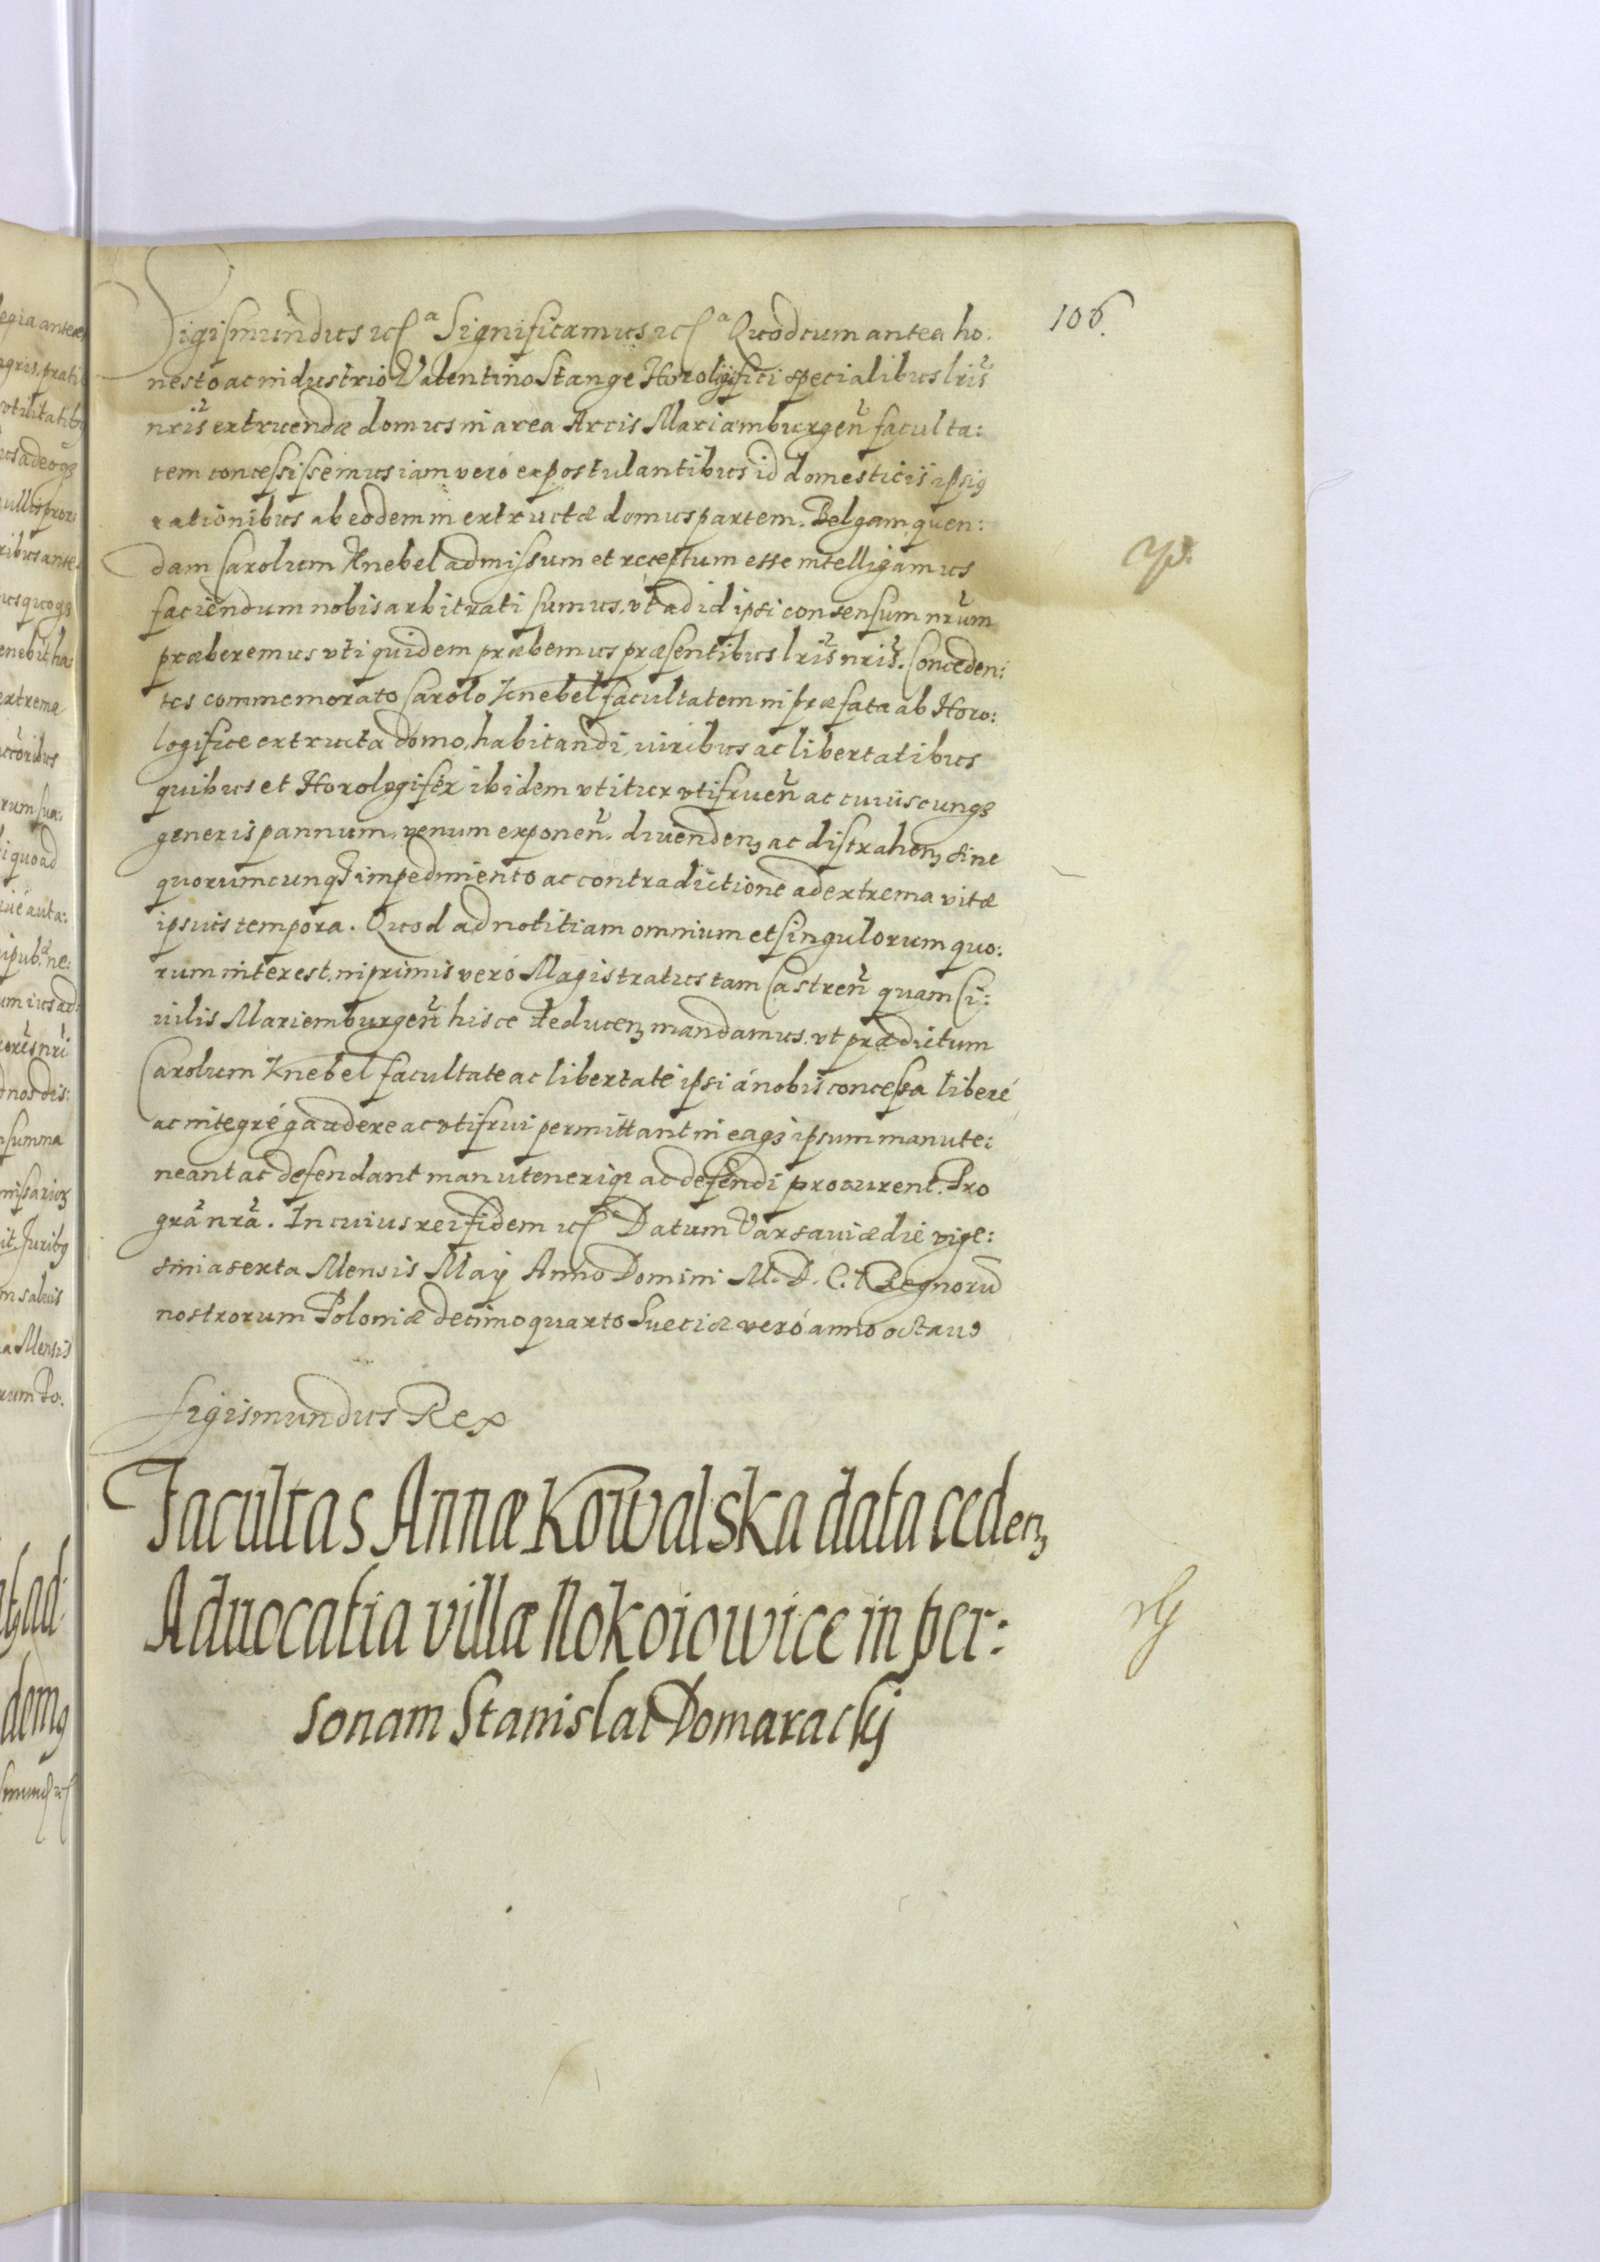 106.
Sigismundus etc.a Significamus etc.a Quod cum antea ho:
nesto ac industrio Valentino Stange Horologifici specialibus lris
nris extruendæ domus in area Arcis Mariæmburgen faculta:
tem concessissemus iam veró expostulantibus id domesticis ipsius
rationibus ab eodem in extructæ domus partem. Belgam quen:
dam Carolum Knebel admissum et receptum esse intelligamus
faciendum nobis arbitrati sumus, vt ad id ipsi consensum nrum
præberemus vti quidem præbemus præsentibus lris nris. Conceden:
tes commemorato Carolo Knebel facultatem in præfata ab Horo:
logifice extructa domo, habitandi, iuribus ac libertatibus
quibus et Horologifex ibidem vtitur vtifruen ac cuiuscunq3
generis pannum, venum exponen. diuenden3 ac distrahen3 sine
quorumcunq3 impedimento ac contradictione ad extrema vitæ
ipsius tempora. Quod ad notitiam omnium et singulorum quo:
rum interest, in primis veró Magistratus tam Castren quam Ci:
uilis Mariemburgen hisce deducen3 mandamus, vt prædictum
Carolum Knebel facultate ac libertate ipsi á nobis concessa liberé
ac integré gaudere ac vtifrui permittant in eaq3 ipsum manute:
neant ac defendant manutenerique ac defendi procurent. Pro
gra nra. In cuius rei fidem etc.a Datum Varsauiæ die vige:
sima sexta Mensis Maij Anno Domini M. D. C. I. Regnoru
nostrorum Poloniæ decimoquarto Sueciæ veró anno octauo
Sigismundus Rex
Facultas Annæ Kowalska data ceden3
Aduocatia villæ Nokoiowice in per:
sonam Stanislai Domaracki